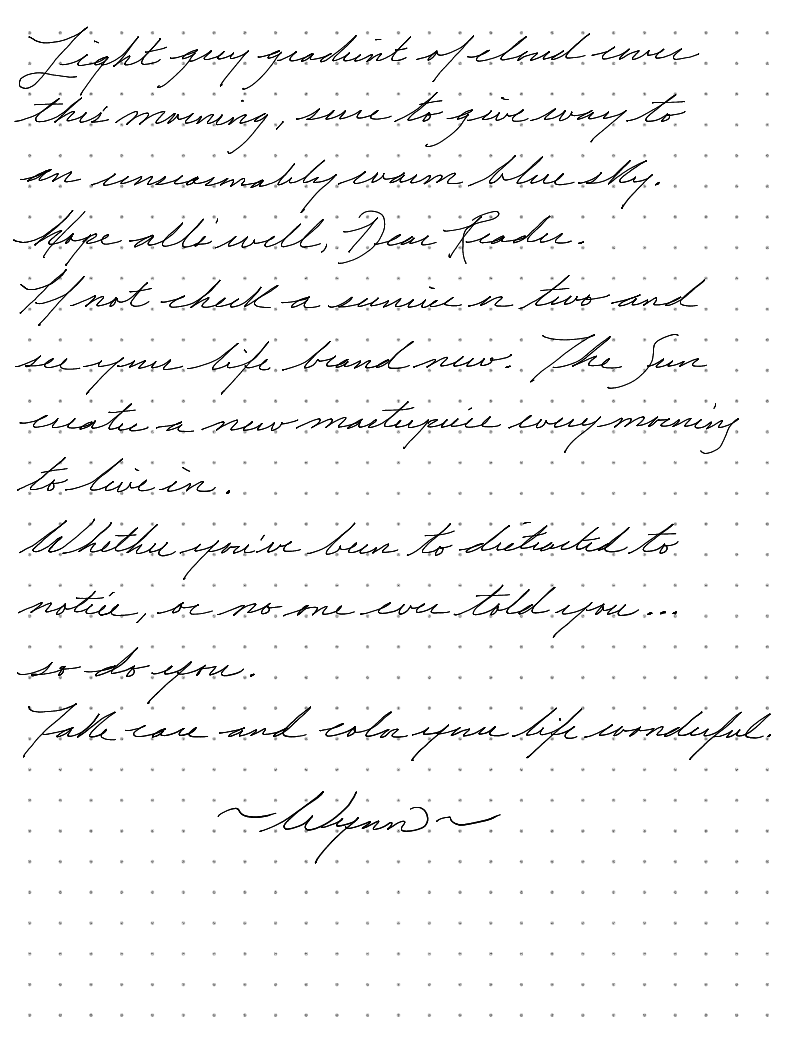 Light grey gradient of cloud cover
this morning, sure to give way to
an unseasonably warm blue sky.
Hope all's well, Dear Reader.
If not check a sunrise or two and
see your life brand new. The Sun
creates a new masterpiece every morning
to live in.
Whether you've been to distracted to
notice, or no one ever told you...
so do you.
Take care and color your life wonderful.
~Wynn~